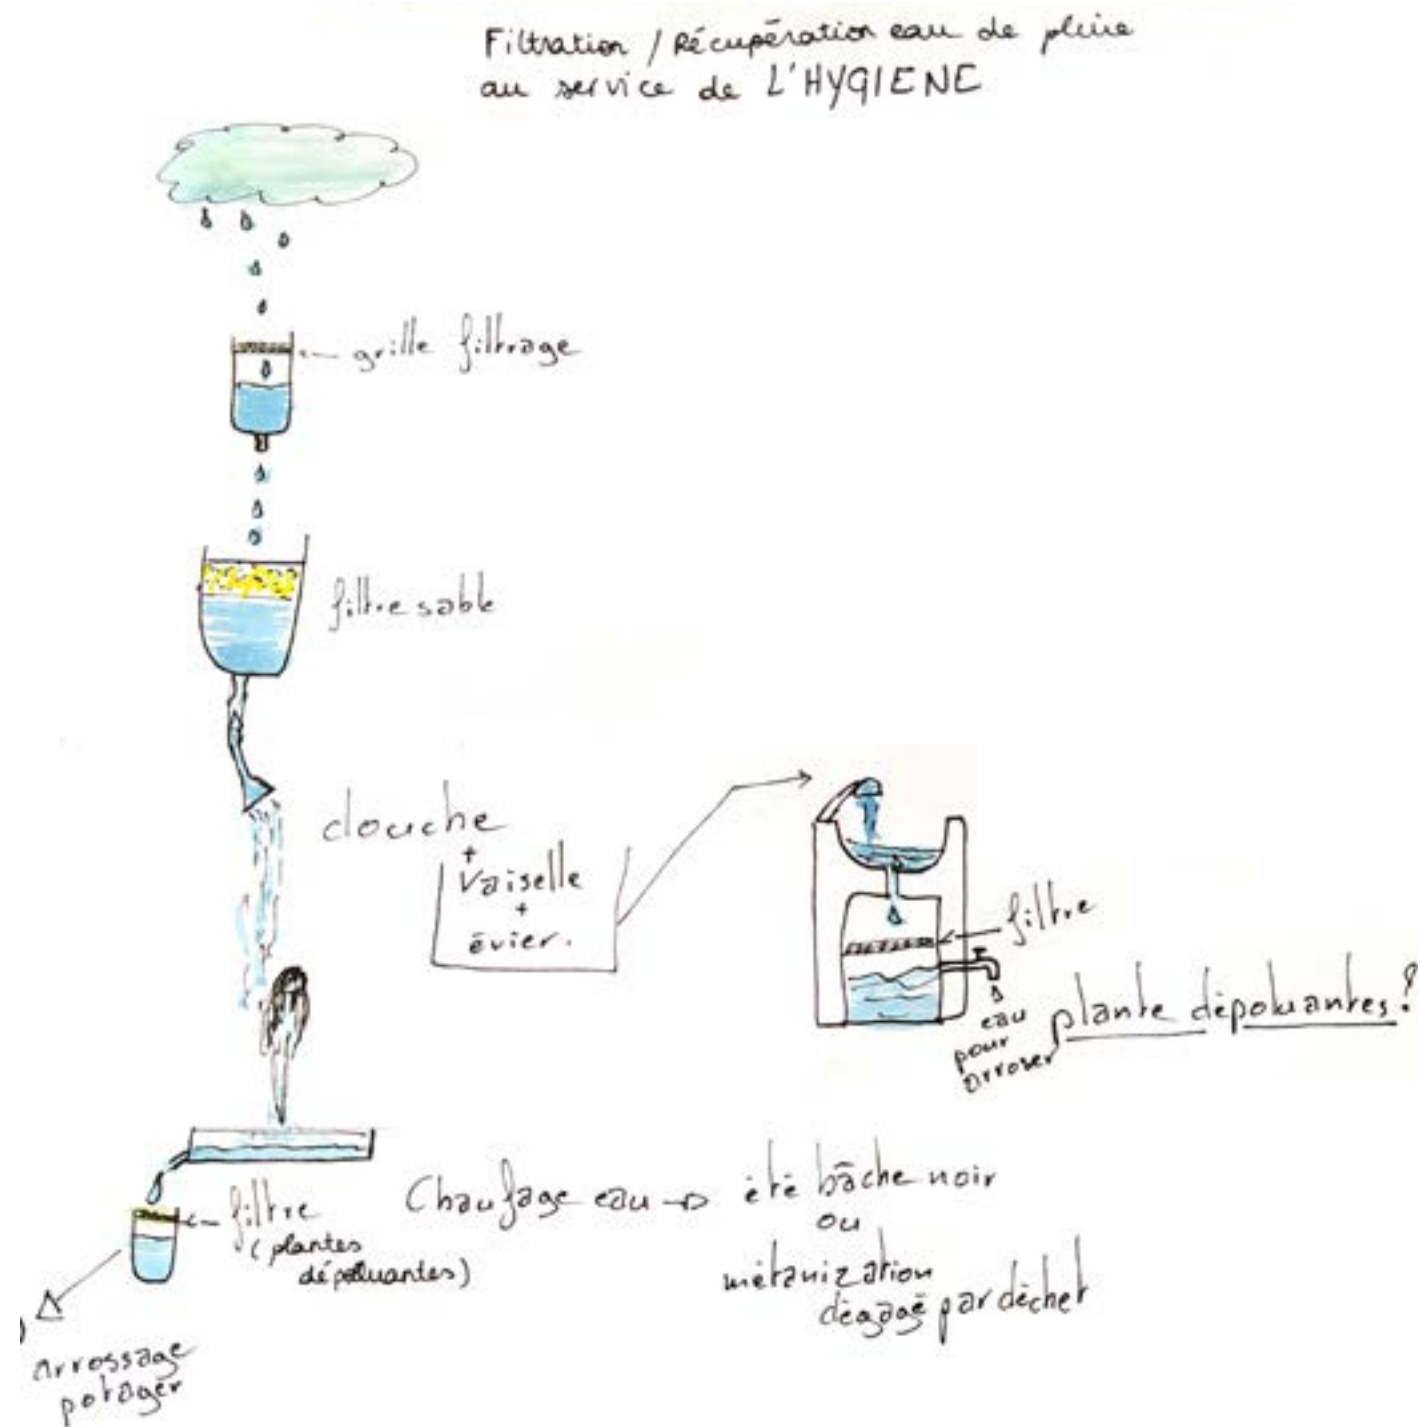 Filtration / Récupération eau de pluie
au service de L'HYGIENE
grille filtrage
filtre sable
douche
+
vaiselle
+
évier.
filtre
eau
pour
arroser
plante dépoluantes ?
filtre
(plantes
dépoluantes)
Chaufage eau → été bâche noir
ou
métanization
dégagé par déchet
arrossage
potager